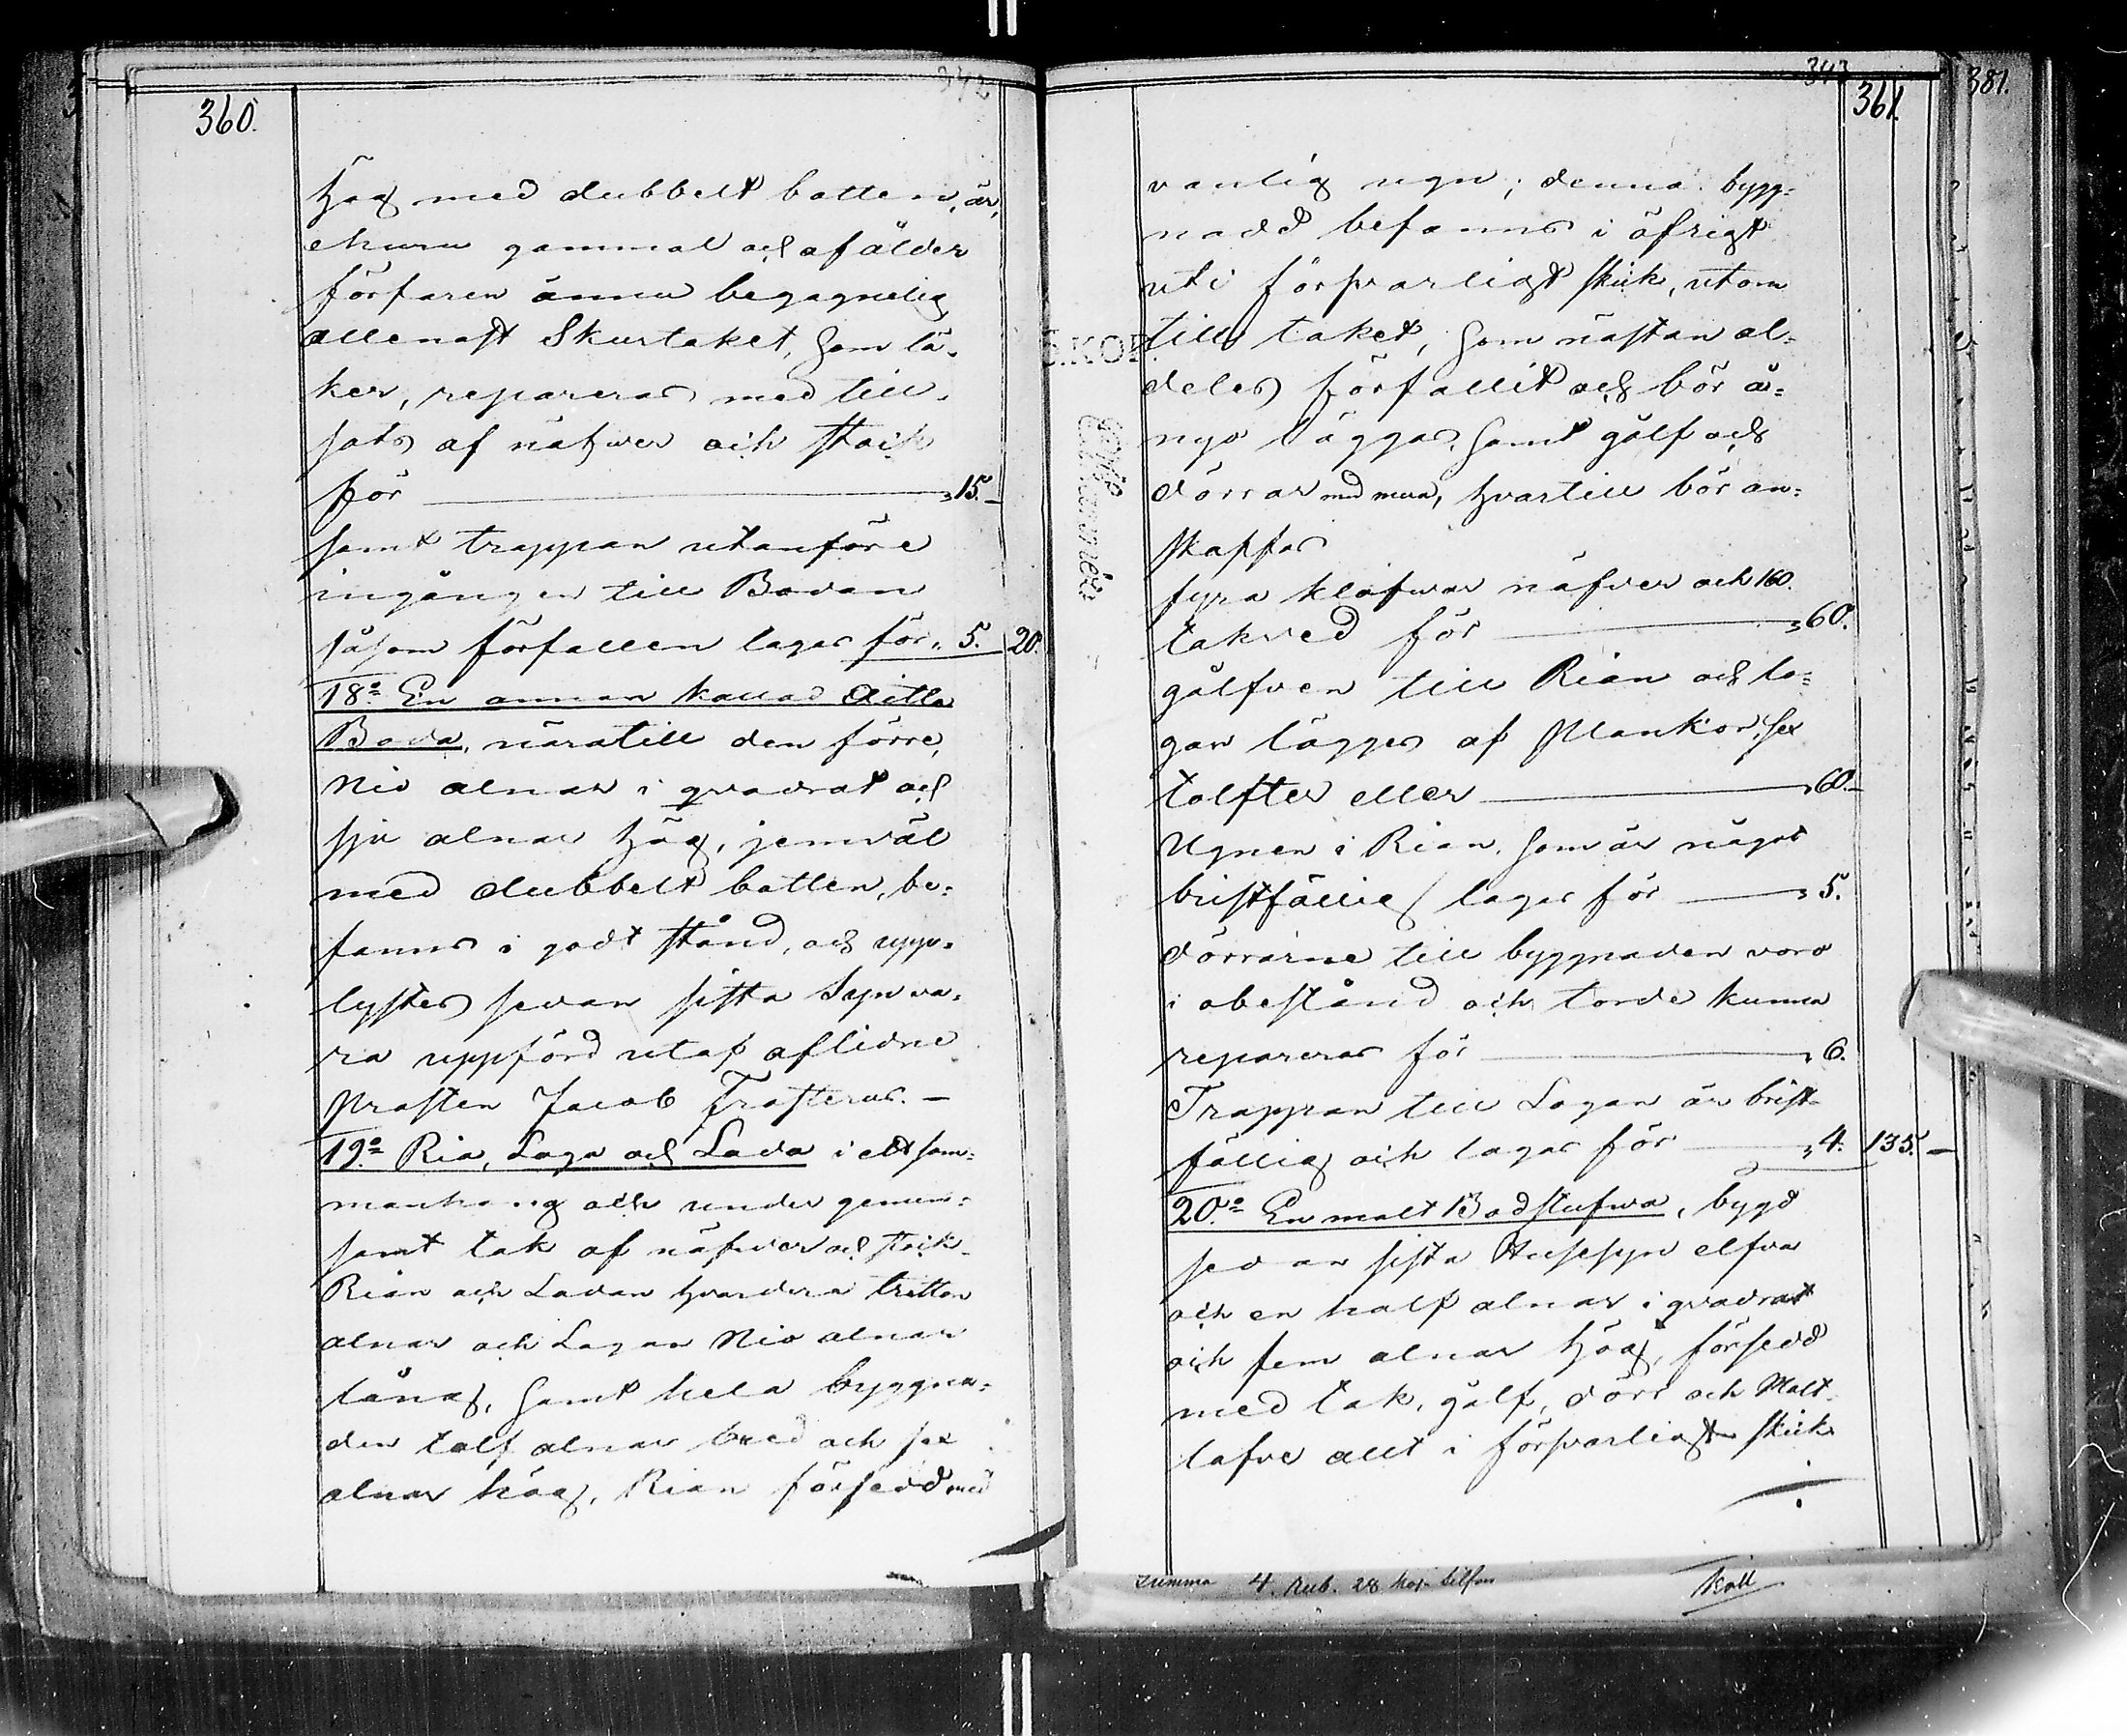 342
360.
hög med dubbelt botten, är,
ehuru gammal och af ålder
förfaren ännu begagnelig
allenast Skurtaket, som lä-
ker, repareras med till-
sats af näfver och stäck
för — „15.–
samt trappan utanföre
ingången till Bodan
såsom förfallen lagas för „ 5. 20.
18:o En annan kallad Aitta
Boda, näratill den förre,
Nio alnar i qvadrat och
sju alnar hög, jemväl
med dubbelt botten, be-
fanns i godt stånd, och upp-
lystes sedan sista Syn va-
ra uppförd utaf aflidne
Prosten Jacob Frosterus. –
19:o Ria, Loga och Lada i ett sam-
manhang och under gemen-
samt tak af näfver och stäck
Rian och Ladan hvardera tretton
alnar och Logan Nio alnar
lång, samt hela byggna-
den tolf alnar bred och sex
alnar hög, Rian försedd med
343
361.
381.
vanlig ugn; denna bygg-
nadd befanns i öfrigt
uti försvarligt skick, utom
till taket, som nästan al-
deles förfallit och bör å-
nyo läggas, samt gålf och
dörrar med mera, hvartill bör an-
skaffas
fyra klofwar näfver och 160.
takved för — „60.
gålfven till Rian och lo-
gan lägges af Plankor, sex
tolfter eller — „60.–
Ugnen i Rian, som är något
bristfällig lagas för — „ 5.
dörrarne till byggnaden voro
i obestånd och torde kunna
repareras för — „ 6.
Trappan till Logan är brist-
fällig och lagas för — „4. 135.–
20:o En malt Badstufwa, bygd
sedan sista Husesyn elfva
och en half alnar i qvadrat
och fem alnar hög, försedd
med tak, gålf, dörr och Malt-
lafve allt i försvarligt skick
summa 4. Rub. 28 kop. silfver